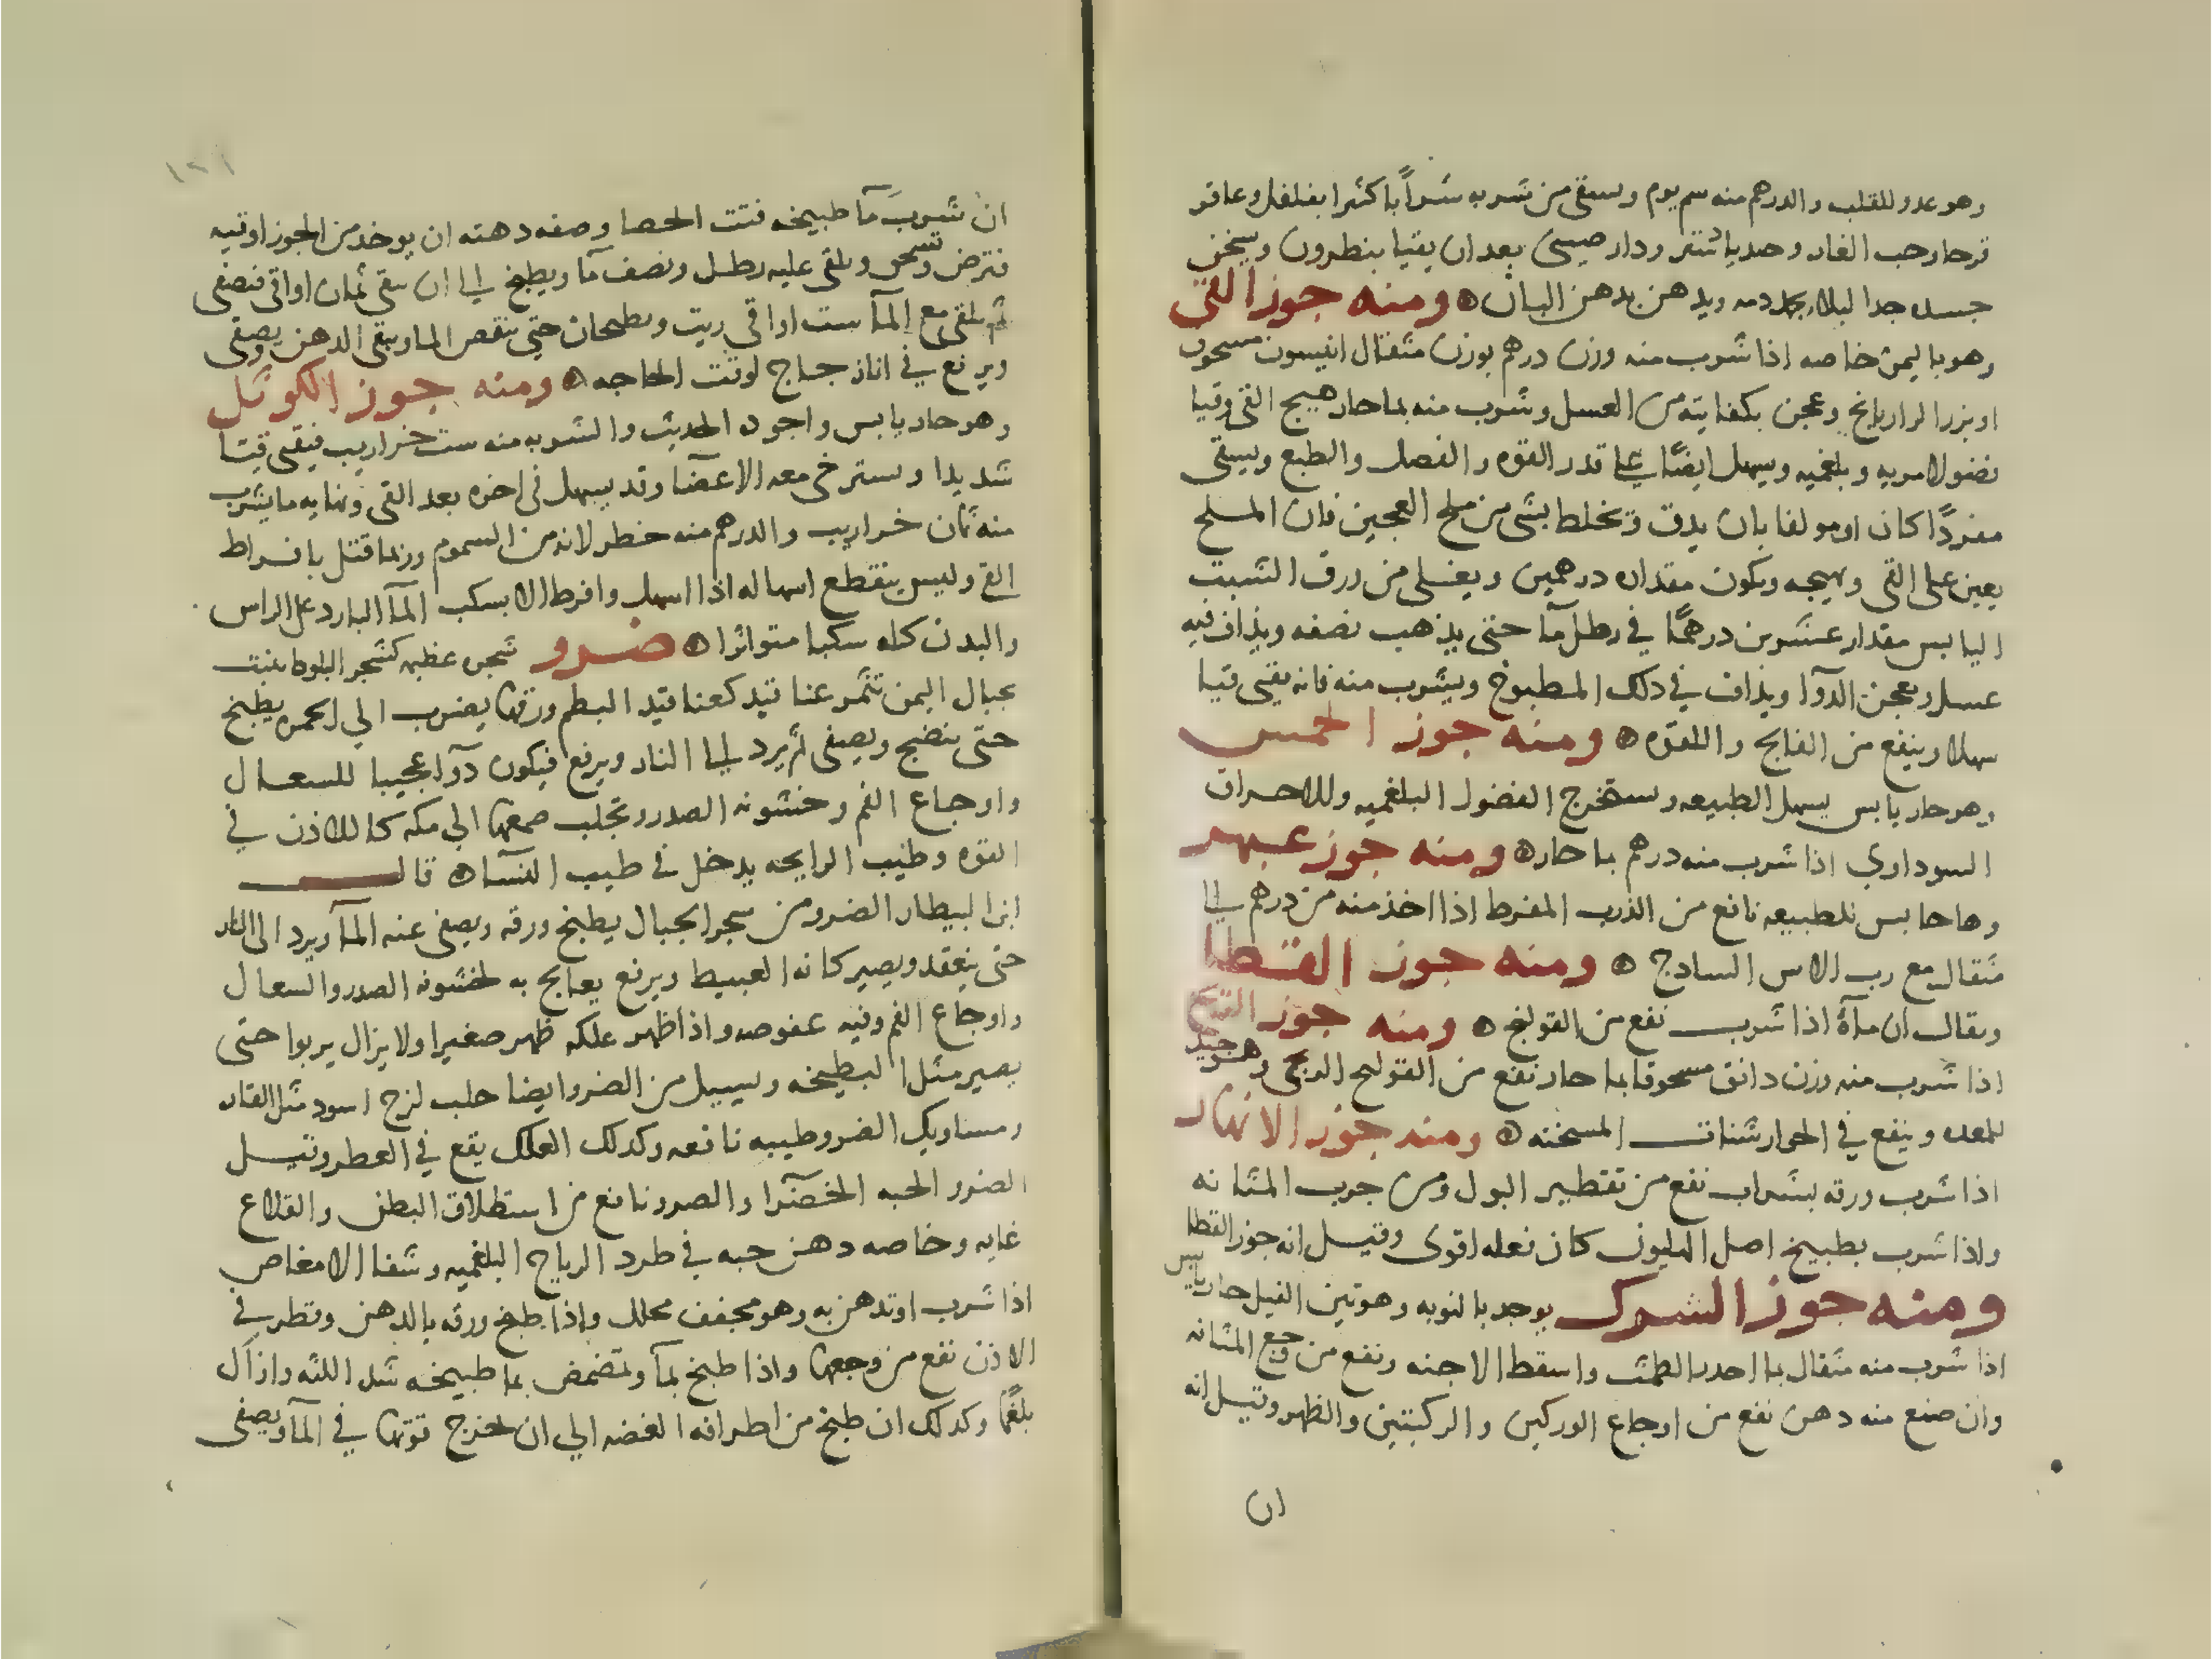 وهو عدو للقلب والدرهم منه سم يوم ويسقى من شربه شرابا كثيرا بفلفل وعاقر
قرحا وحب الغار ودار صيني بعد ان يقيا بنطرون ويسخن
جسده جدا ليلا دمه ويدهن بدهن البان ومنه جوز القي
وهو باليمن خاصه اذا شرب منه وزن درهم بوزن مثقال انيسون مسحوق
او بزر الرازيانج وعجن بكفايته من العسل وشرب منه بماحار هيج القي وقيا
فضولا مريه وبلغميه ويسهل ايضا على قدر القوه والفصل والطبع ويسقى
مفردا كان او مولفا بان يدق وتخلط بشي من ملح العجين فان الملح
يعين على القي ويهيجه ويكون مقداره درهمين ويغلى من ورق الشبت
اليابس مقدار عشرين درهما في رطل مآ حتى يذهب نصفه ويذاف فيه
عسل ويعجن الدوآ ويذاف في ذلك المطبوخ ويشرب منه فانه يقي قيا
سهلا وينفع من الفالج واللقوه ومنه جوز الخمس
وهو حار يابس يسهل الطبيعه ويستخرج الفضول البلغميه وللاحراق
السوداوي اذا شرب منه درهم بماحار ومنه جوز عبهر
وهاحابس للطبيعه نافع من الذرب المفرط اذا اخذ منه من درهم الى
مثقال مع رب الاس الساذج ومنه جوز القطا
ويقال ان مآه اذا شرب نفع من القولنج ومنه جوز
اذا شرب منه وزن دانق مسحوقا بما حار نفع من القولنج الريحي وهو جيد
للمعده وينفع في الجوارشنات المسخنه ومنه جوز الانهار
اذا شرب ورقه بشراب نفع من تقطير البول ومن جرب المثانه
واذا شرب بطبيخ اصل الهليون كان فعله اقوى وقيل انه جوز القطا
ومنه جوز الشرك يوجد بالنوبه وهو تين الفيل حار يابس
اذا شرب منه مثقال بما احدر الطمث واسقط الاجنه ونفع من وجع المثانه
وان صنع منه دهن نفع من اوجاع الوركين والركبتين والظهر وقيل انه
ان
١٢١
ان شرب مآ طبيخه فتت الحصا وصفه دهنه ان يوخذ من الجوز اوقيه
فترض وتسحق ويلقى عليه رطل ونصف مآ ويطبخ الى ان يبقى ثمان اواقي فتصفى
ثم يلقى مع المآ ست اواقي زيت ويطبخان حتى ينقص الما ويبقى الدهن ويصفى
ويرفع في انا زجاج لوقت الحاجه ومنه جوز الكوثل
وهو حار يابس واجوده الحديث والشربه منه ست خراريب فيقي قيئا
شديدا وسترخي معه الاعضا وقد يسهل في اخره بعد القي ونهايه ما يشرب
منه ثمان خراريب والدرهم منه خطر لانه من السموم وربما قتل بافراط
القي وليس ينقطع اسهاله اذا اسهل وافرط الا بسكب المآ البارد على الراس
والبدن كله سكبا متواترا ضرو شجره عظيمه كشجر البلوط ينبت
بجبال اليمن تثمر عناقيد كعناقيد البطم ورقها يضرب الي الحمره يطبخ
حتى ينضج ويصفى ثم يرد الى النار ويرفع فيكون دوآ عجيبا للسعال
واوجاع الفم وخشونه الصدر وتجلب صمغها الي مكه كاللاذن في
القوه وطيب الرايحه يدخل في طيب النسآ قال
ابن البيطار الضرو من شجر الجبال يطبخ ورقه ويصفى عنه المآ ويرد الى النار
حتى ينعقد ويصير كانه العبيط ويرفع يعالج به لخشونه الصدر والسعال
واوجاع الفم وفيه عفوصه واذا ظهر علكه ظهر صغيرا ولا يزال يربوا حتى
يصير مثل البطيخه ويسيل من الضرو ايضا حلب لزج اسود مثل القار
ومساويك الضرو طيبه نافعه وكذلك العلك يقع في العطر وقيل
الضرو الحبه الخضرا والضرو نافع من استطلاق البطن والقلاع
غايه وخاصه دهن حبه في طرد الرياح البلغميه وشفا الامغاص
اذا شرب او تدهن به وهو مجفف محلل واذا طبخ ورقه بالدهن وقطر في
الاذن نفع من وجعها واذا طبخ بمآ وتمضمض بما طبيخه شد اللثه وازال
بلغمها وكذلك ان طبخ من اطرافه الغضه الي ان تخرج قوتها في المآ ويصفى